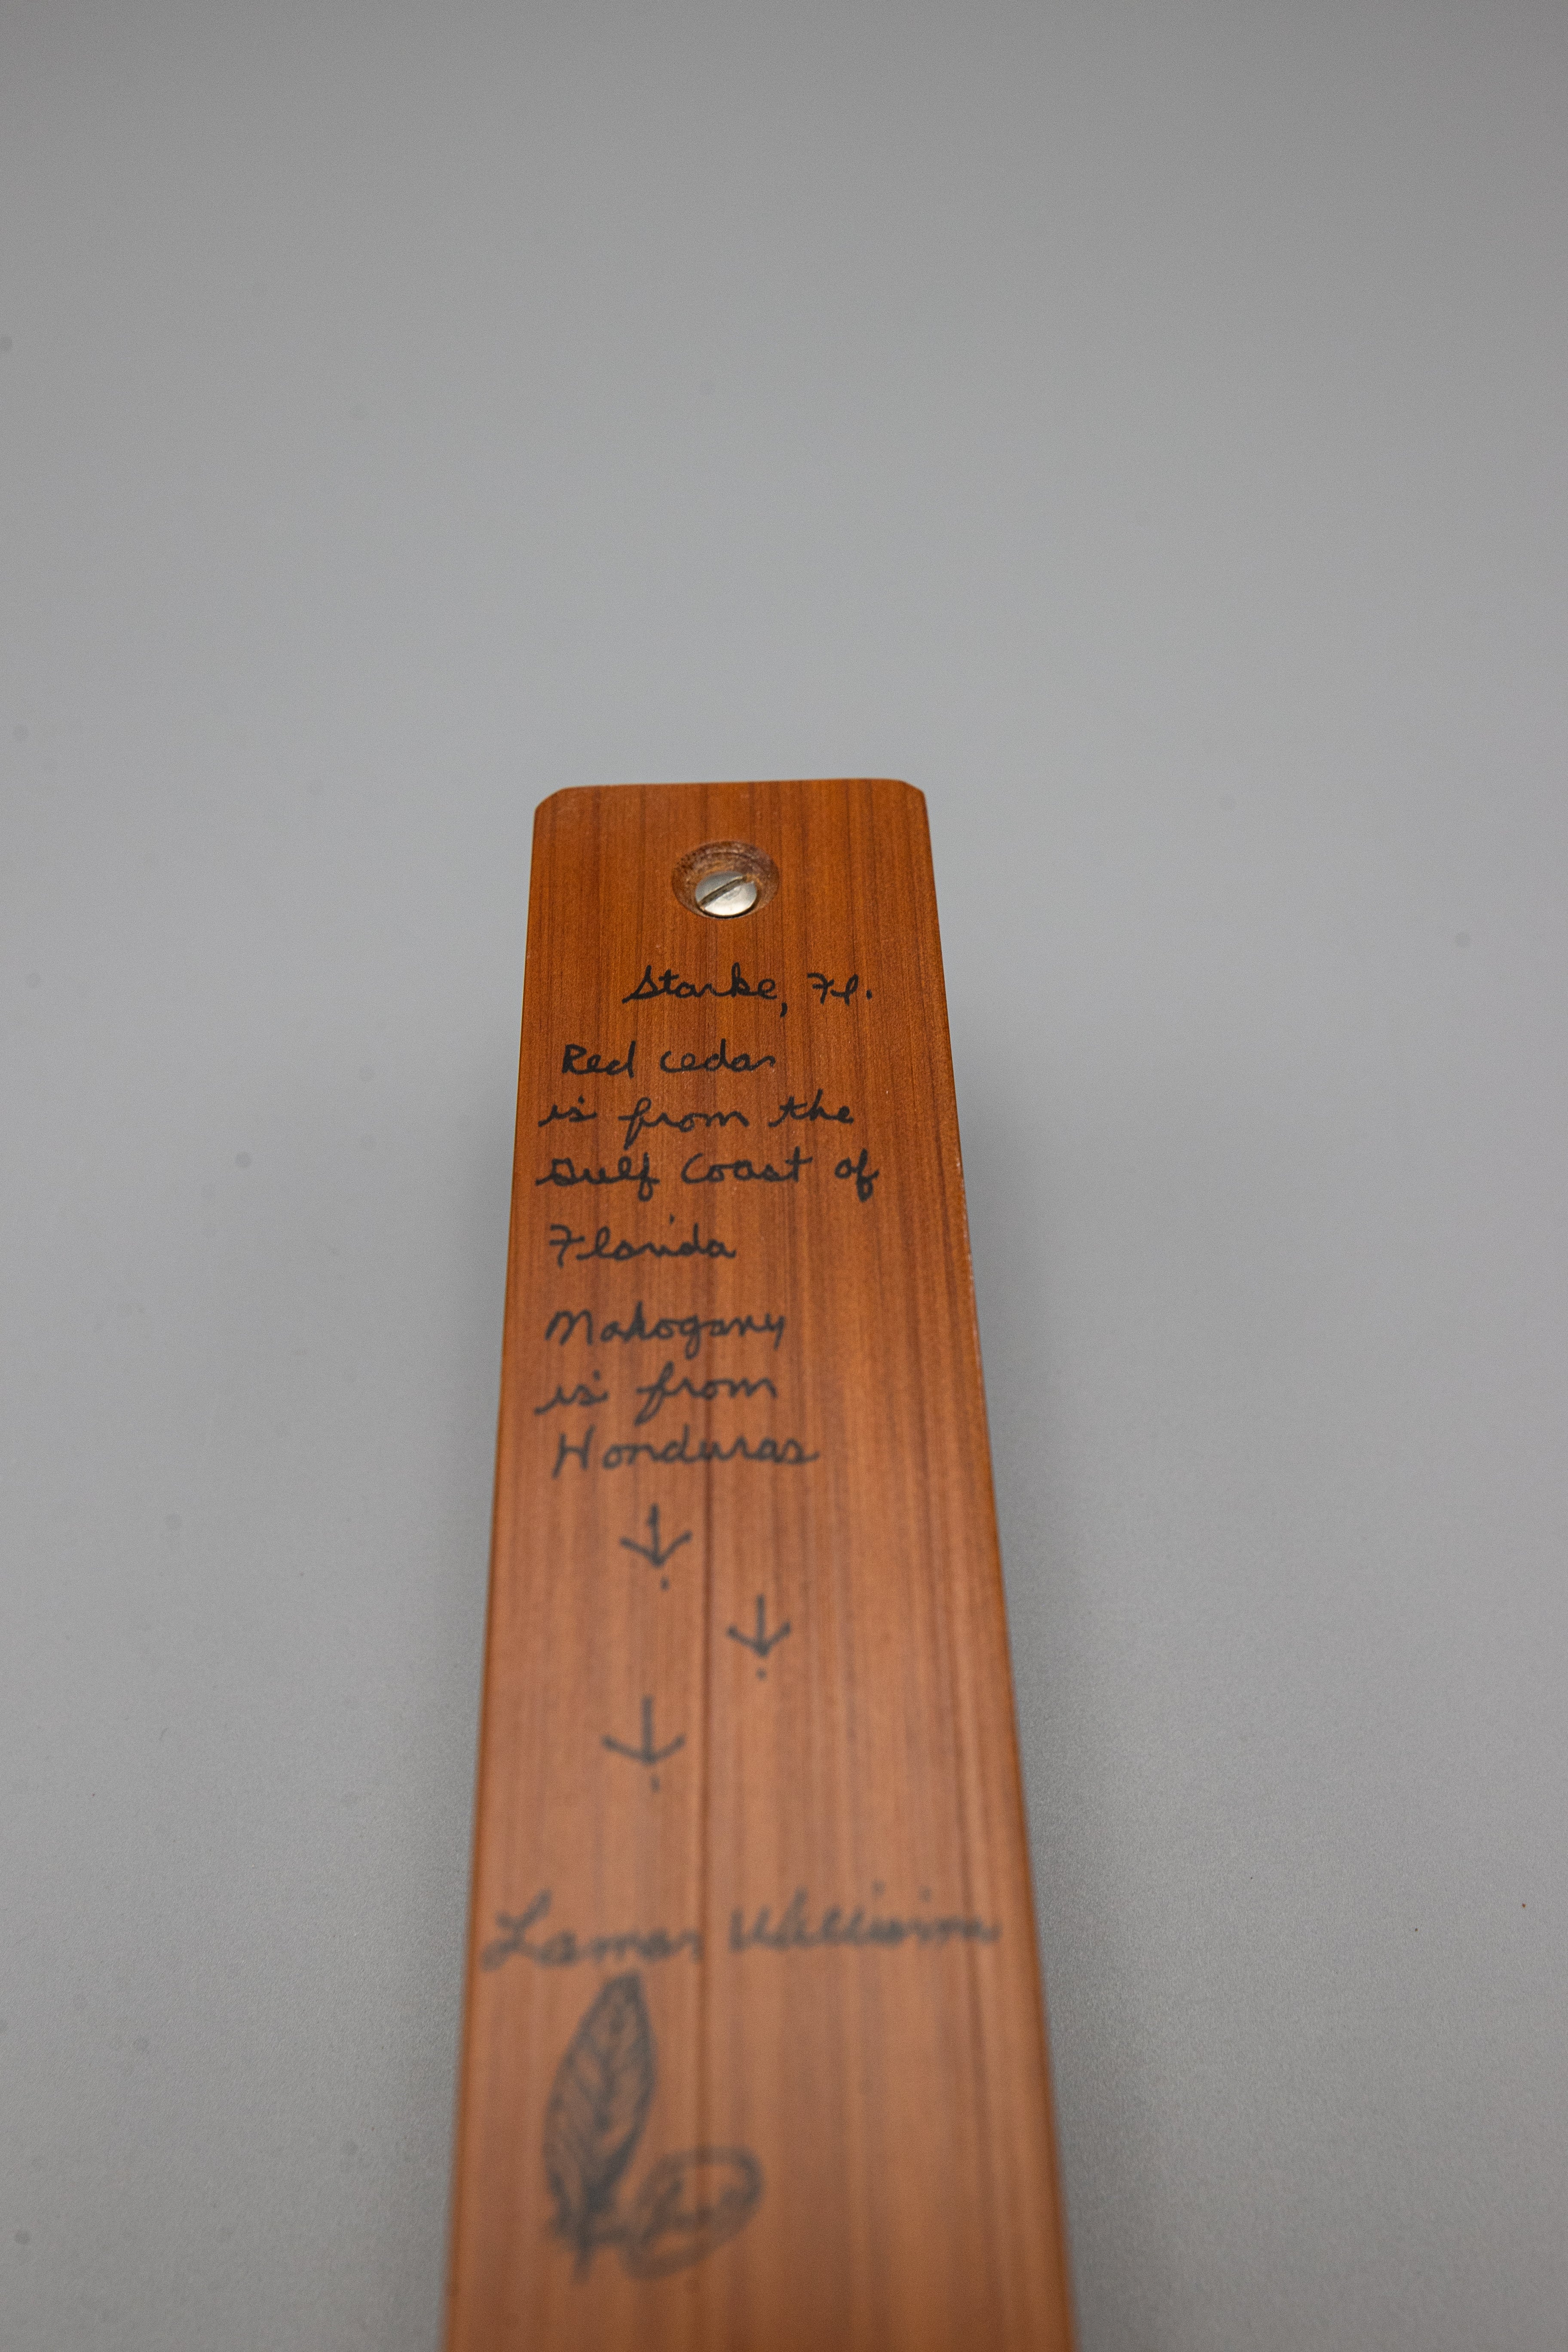 Starke, Fl.
Red cedar
is from the
Gulf Coast of
Florida
Mahogany
is from
Honduras
Lamar Williams